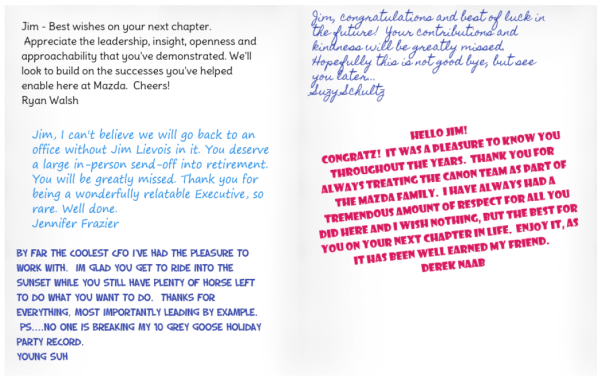 Jim - Best wishes on your next chapter.
Appreciate the leadership, insight, openness and
approachability that you've demonstrated. We'll
look to build on the successes you've helped
enable here at Mazda. Cheers!
Ryan Walsh
Jim, I can't believe we will go back to an
office without Jim Lievois in it. You deserve
a large in-person send-off into retirement.
You will be greatly missed. Thank you for
being a wonderfully relatable Executive, so
rare. Well done.
Jennifer Frazier
BY FAR THE COOLEST CFO I'VE HAD THE PLEASURE TO
WORK WITH. IM GLAD YOU GET TO RIDE INTO THE
SUNSET WHILE YOU STILL HAVE PLENTY OF HORSE LEFT
TO DO WHAT YOU WANT TO DO. THANKS FOR
EVERYTHING, MOST IMPORTANTLY LEADING BY EXAMPLE.
PS....NO ONE IS BREAKING MY 10 GREY GOOSE HOLIDAY
PARTY RECORD.
YOUNG SUH
Jim, congratulations and best of luck in
the future! Your contributions and
kindness will be greatly missed.
Hopefully this is not good bye, but see
you later...
Suzy Schultz
HELLO JIM!
CONGRATZ! IT WAS A PLEASURE TO KNOW YOU
THROUGHOUT THE YEARS. THANK YOU FOR
ALWAYS TREATING THE CANON TEAM AS PART OF
THE MAZDA FAMILY. I HAVE ALWAYS HAD A
TREMENDOUS AMOUNT OF RESPECT FOR ALL YOU
DID HERE AND I WISH NOTHING, BUT THE BEST FOR
YOU ON YOUR NEXT CHAPTER IN LIFE. ENJOY IT, AS
IT HAS BEEN WELL EARNED MY FRIEND.
DEREK NAAB